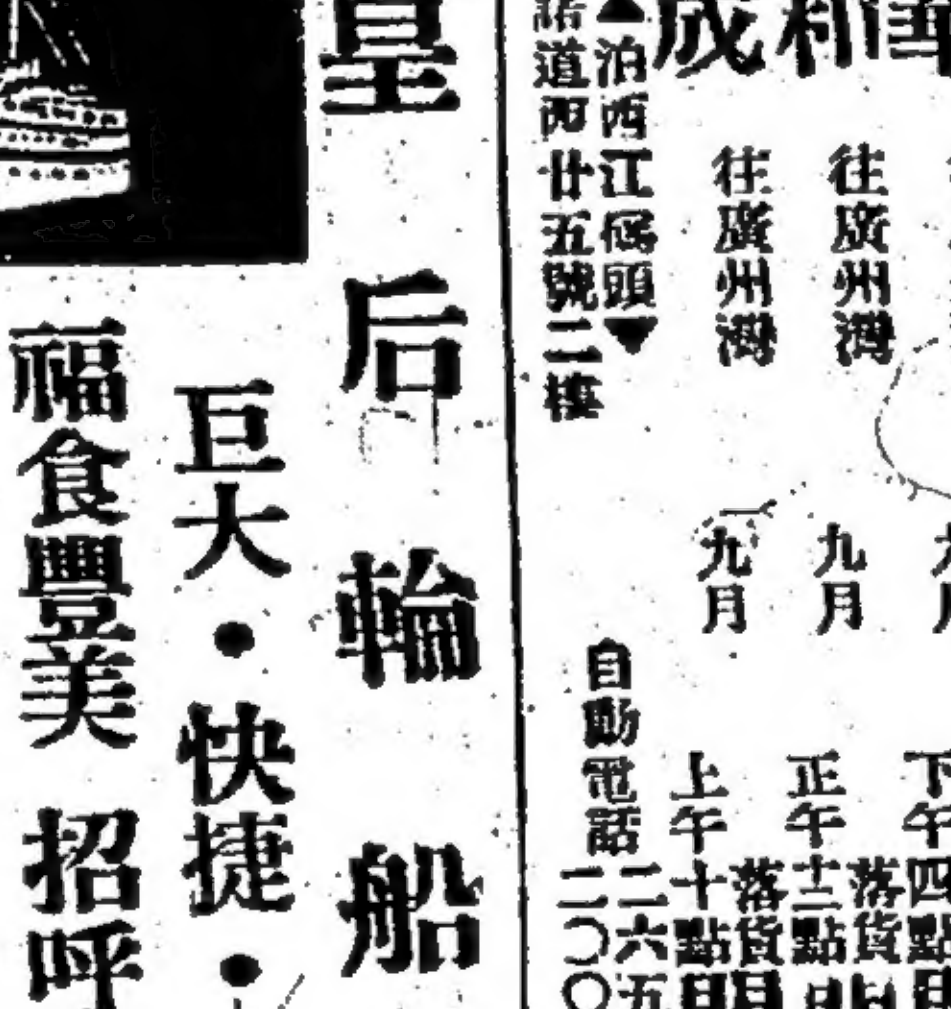 和成
往廣州灣 九月 正午十二點
落貨
往廣州灣 九月 上午十點
落貨
▲泊西江碼頭▼
道西廿五號二樓
自動電話 二六五
二〇〇
皇后輪船
巨大・快捷・
福食豐美 招呼